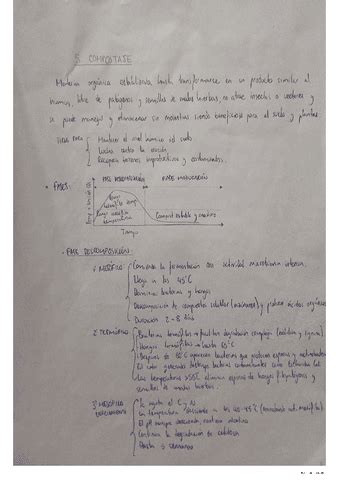 5. COMPOSTAJE
Materia orgánica estabilizada hasta transformarse en un producto similar al
humus, libre de patógenos y semillas de malas hierbas, no atrae insectos o vectores y
se puede manejar y almacenar sin molestias siendo beneficioso para el suelo y plantas
Mantener el nivel húmico del suelo
Lucha contra la erosión
Recuperar terrenos improductivos y contaminados.
• FASES:
FASE DESCOMPOSICIÓN FASE MADURACIÓN
Compost estable y maduro
Tiempo
- FASE DESCOMPOSICIÓN:
1) MESÓFILO
Comienza la fermentación con actividad microbiana intensa.
Llega a los 45°C
Domina bacterias y hongos
Descomposición de compuestos solubles y produce ácidos orgánicos
Duración 2-8 días
2) TERMÓFILO
Bacterias termófilas degradación compleja (celulosa y lignina).
Hongos termófilos hasta 65°C
Después de aparecen bacterias que producen esporas y actinobacterias
El calor generado destruye bacterias contaminantes como Escherichia Coli
Las temperaturas >55°C elimina esporas de hongos fitopatógenos y
semillas de malas hierbas.
3) MESÓFILO
Se agota el C y N
La temperatura desciende a los 40-45°C
El pH
Continúa la degradación de celulosa